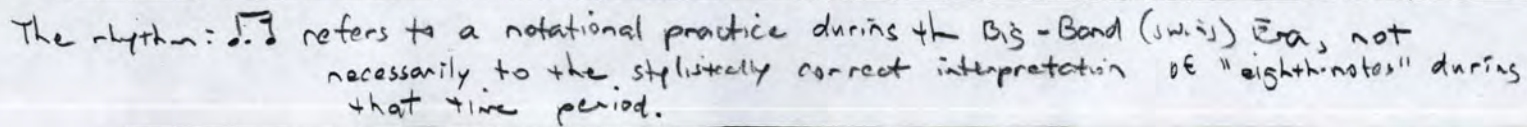 The rhythm: ♩. ♬ refers to a notational practice during the Big-Band (swing) Era, not
necessarily to the stylistically correct interpretation of "eighth-notes" during
that time period.